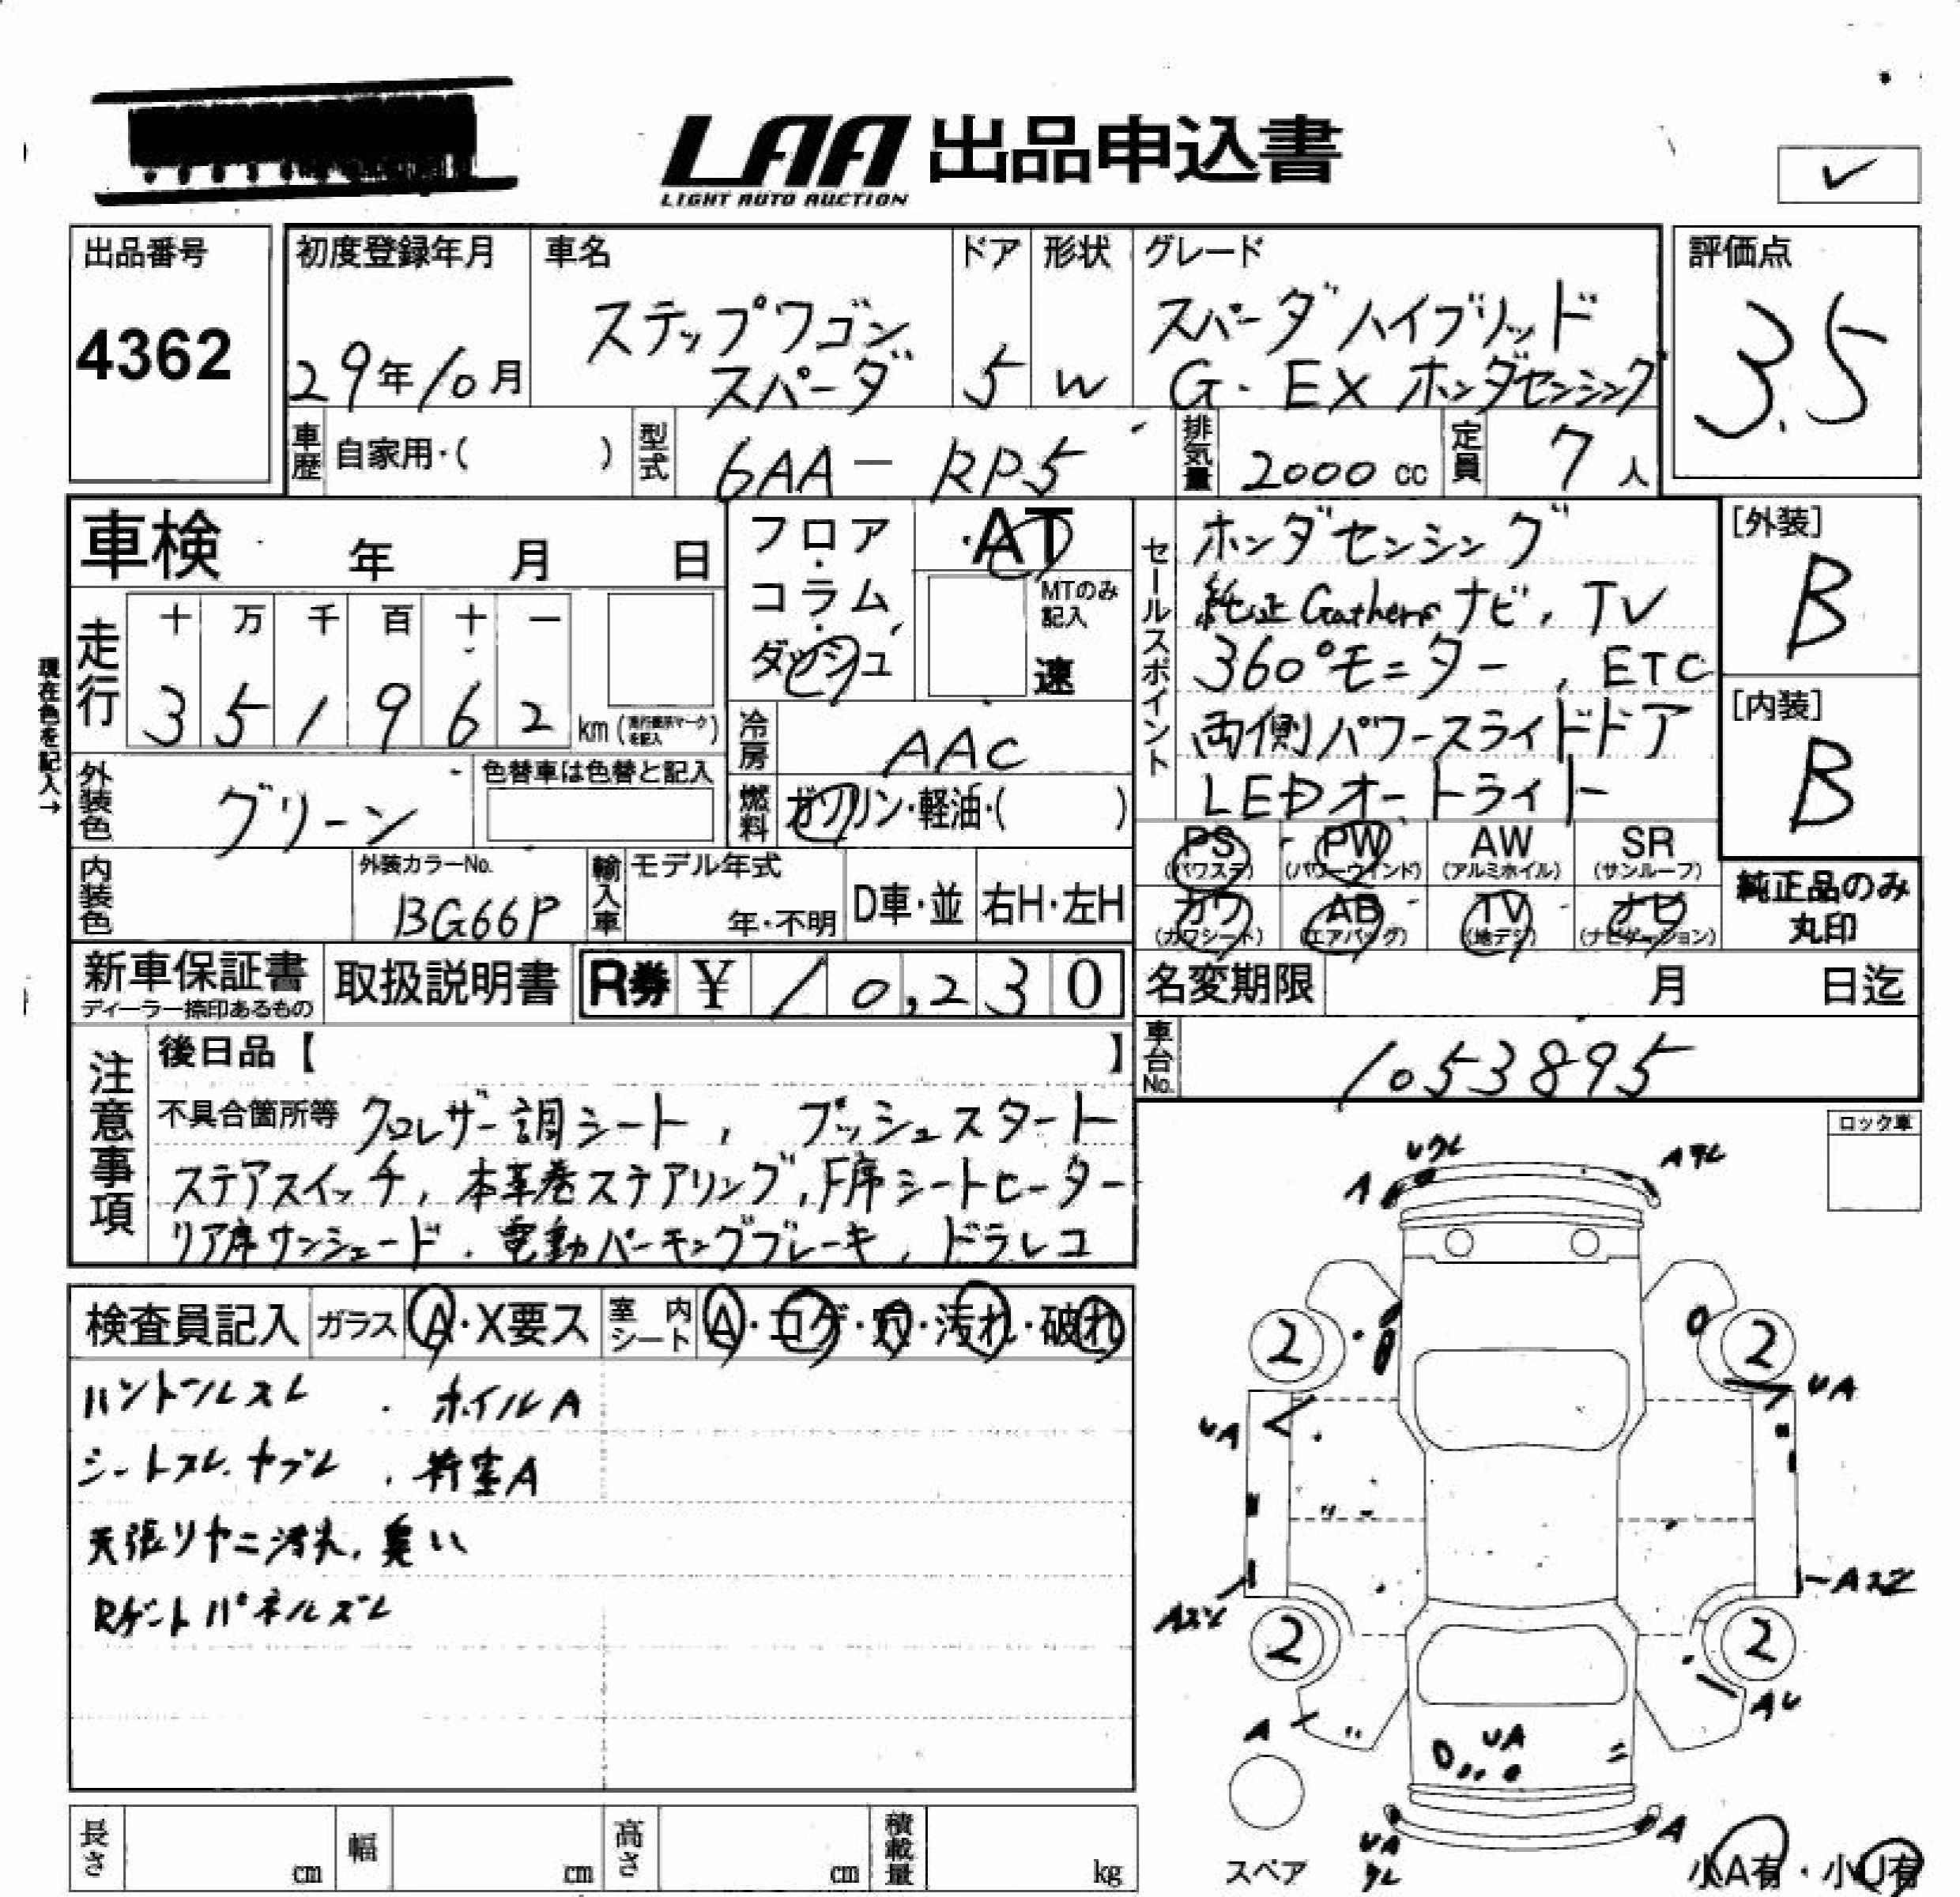 LAA 出品申込書
LIGHT AUTO AUCTION
出品番号
4362
初度登録年月
29年10月
車名
ステップワゴン
スパーダ
ドア
5
形状
W
グレード
スパーダハイブリッド
G・EX ホンダセンシング
評価点
3.5
車歴 自家用・( )
型式 6AA-RP5
排気量 2000 cc
定員 7人
車検 年 月 日
フロア・コラム・ダッシュ
・AT
MTのみ記入
速
走行
十 万 千 百 十 一
3 5 1 9 6 2 km
現在色を記入→
冷房 AAC
外装色 グリーン
色替車は色替と記入
燃料 ガソリン・軽油・( )
内装色
外装カラーNo.
BG66P
輸入車 モデル年式
年・不明
D車・並
右H・左H
セールスポイント
ホンダセンシング
純正Gathersナビ, TV
360°モニター, ETC
両側パワースライドドア
LEDオートライト
[外装]
B
[内装]
B
PS PW AW SR
(パワステ) (パワーウインド) (アルミホイル) (サンルーフ)
カワ AB TV ナビ
(カワシート) (エアバッグ) (地デジ) (ナビゲーション)
純正品のみ
丸印
新車保証書
ディーラー捺印あるもの
取扱説明書
R券 ¥ 10,230
名変期限 月 日迄
車台No. 1053895
注意事項
後日品【 】
不具合箇所等 クロレザー調シート, プッシュスタート
ステアスイッチ, 本革巻ステアリング, F席シートヒーター
リア席サンシェード, 電動パーキングブレーキ, ドラレコ
検査員記入 ガラス A・X要ス 室内シート A・コゲ・穴・汚れ・破れ
ハンドルスレ ・ホイルA
シートスレ.ヤブレ ・荷室A
天張りヤニ汚れ, 臭い
Rゲートパネルズレ
ロック車
Uワレ
A
2 2
UA
UA
Aスレ
2 2
A
AU
UA
UA
ワレ
A
スペア
小A有・小U有
長さ cm
幅 cm
高さ cm
積載量 kg